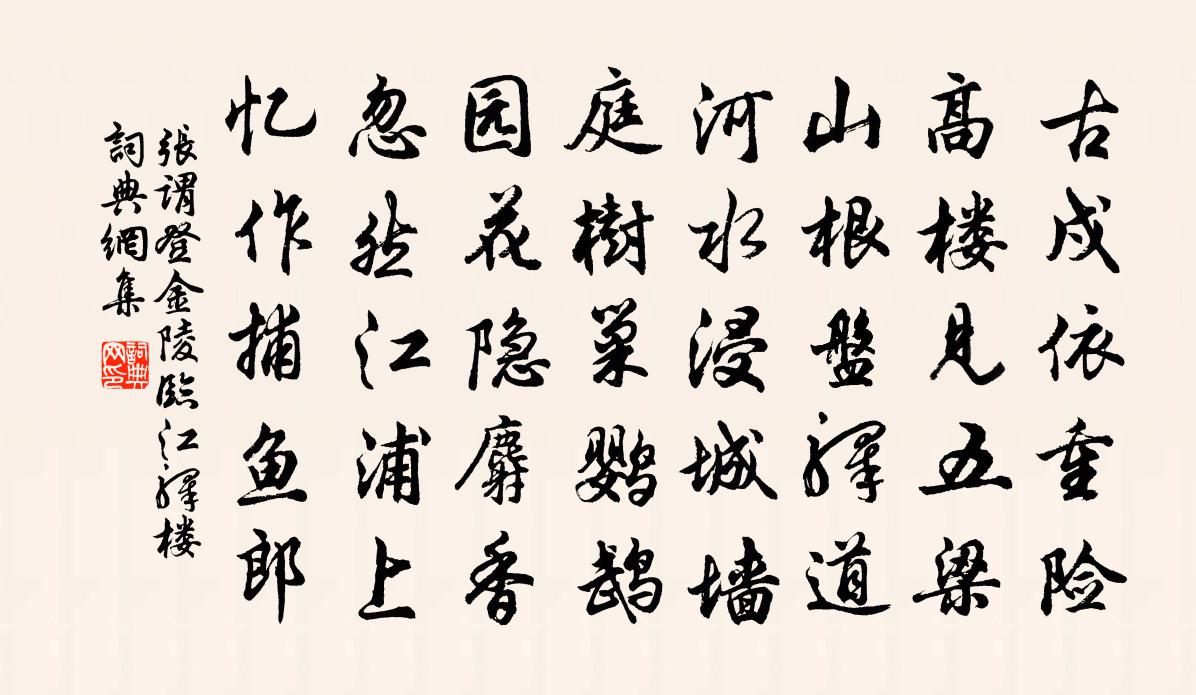 古戍依重险
高楼见五梁
山根盤驿道
河水浸城墙
庭樹巢鹦鹉
园花隐麝香
忽然江浦上
忆作捕鱼郎
張谓登金陵臨江驿楼
詞典網集
詞典网印